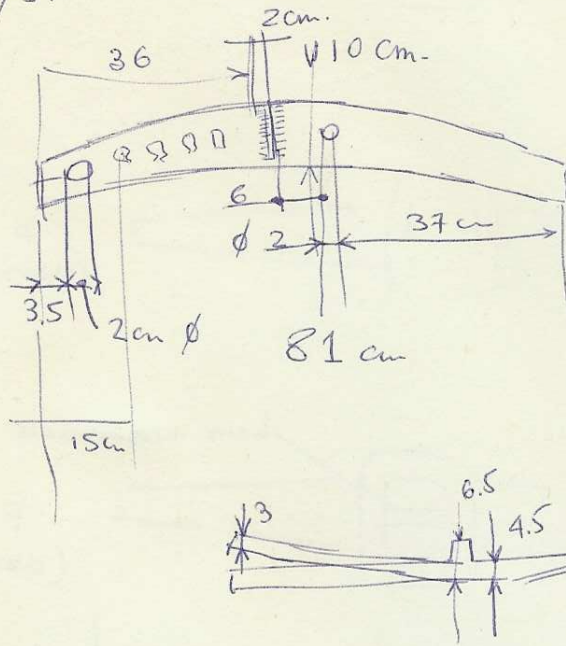 2cm.
36
10 Cm.
6
ϕ 2
37 cm
3.5
2cm ϕ
81 cm
15cm
6.5
3
4.5